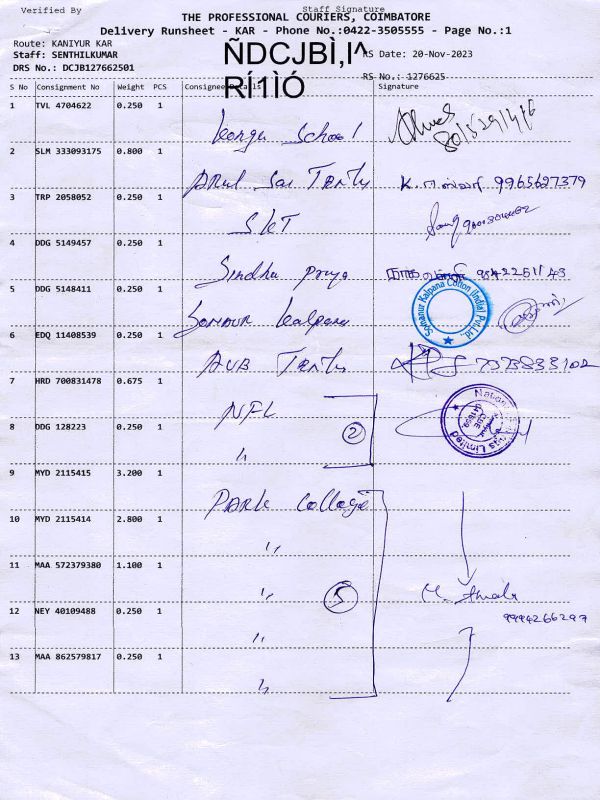 Verified By Staff Signature
THE PROFESSIONAL COURIERS, COIMBATORE
Delivery Runsheet - KAR - Phone No.:0422-3505555 - Page No.:1
Route: KANIYUR KAR
Staff: SENTHILKUMAR RS Date: 20-Nov-2023
DRS No.: DCJB127662501
ÑDCJBÌ,I^
RÍ1ÌÓ
RS No.: 1276625
S No Consignment No Weight PCS Consignee Details Signature
1 TVL 4704622 0.250 1 Kongu School
2 SLM 333093175 0.800 1 Arul Sai Textly 9965627379
3 TRP 2058052 0.250 1 SKT
4 DDG 5149457 0.250 1 Sindhu Priya
5 DDG 5148411 0.250 1 Somanur Kalpana
Somanur Kalpana Cotton (India) Pvt.Ltd.
6 EDQ 11408539 0.250 1 AVB
7 HRD 700831478 0.675 1 NFL
8 DDG 128223 0.250 1 〃 2
9 MYD 2115415 3.200 1 Park College
10 MYD 2115414 2.800 1 〃
11 MAA 572379380 1.100 1 〃 5
12 NEY 40109488 0.250 1 〃 9994266297
13 MAA 862579817 0.250 1 〃